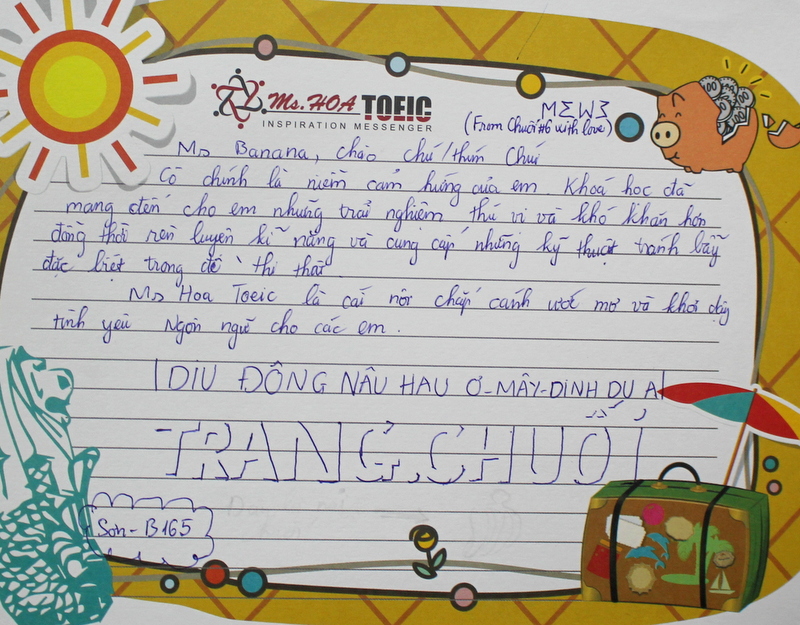 Ms. HOA TOEIC
INSPIRATION MESSENGER
MΣWΣ
(From Chuối #6 with love)
Ms Banana, chào chú/thím Chuí
Cô chính là niềm cảm hứng của em. Khoá học đã
mang đến cho em những trải nghiệm thú vị và khó khăn hơn
đồng thời rèn luyện kĩ năng và cung cấp những kỹ thuật tránh bẫy
đặc biệt trong đề thi thật.
Ms Hoa Toeic là cái nôi chắp cánh ước mơ và khơi dậy
tình yêu Ngôn ngữ cho các em.
DIU ĐÔNG NÂU HAU Ơ-MÂY-DINH DU A
TRANG.CHUỐI
Sơn-B165